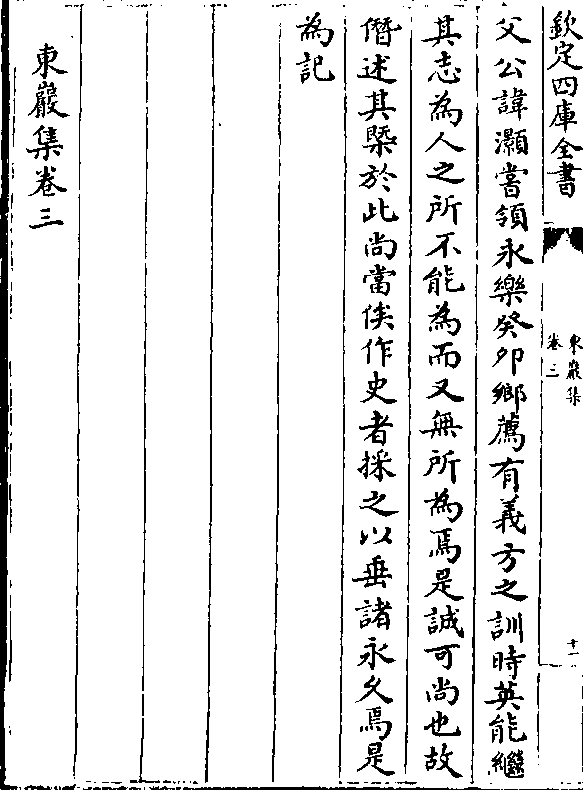 欽定四庫全書
東巖集
卷三
十一
父公諱灝嘗領永樂癸卯鄉薦有義方之訓時英能繼
其志為人之所不能為而又無所為焉是誠可尚也故
僭述其槩於此尚當俟作史者採之以垂諸永久焉是
為記
東巖集卷三